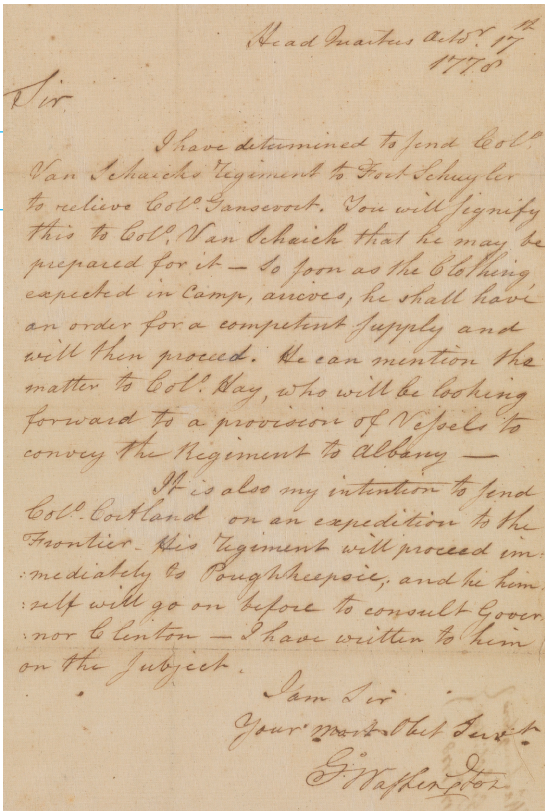 Head Quarters Octobr. 17th
1778
Sir
I have determined to send Colo.
Van Schaicks Regiment to Fort Schuyler
to relieve Colo. Gansevort. You will signify
this to Colo. Van Schaick that he may be
prepared for it — So soon as the Clothing
expected in Camp, arrives, he shall have
an order for a competent supply and
will then proceed. He can mention the
matter to Colo. Hay, who will be looking
forward to a provision of Vessels to
convey the Regiment to Albany —
It is also my intention to send
Colo. Cortland on an expedition to the
Frontier. His Regiment will proceed im-
:mediately to Poughkeepsie, and he him-
:self will go on before to consult Gover
:nor Clinton — I have written to him
on the subject.
I am Sir
Your most Obet Servt
Go: Washington